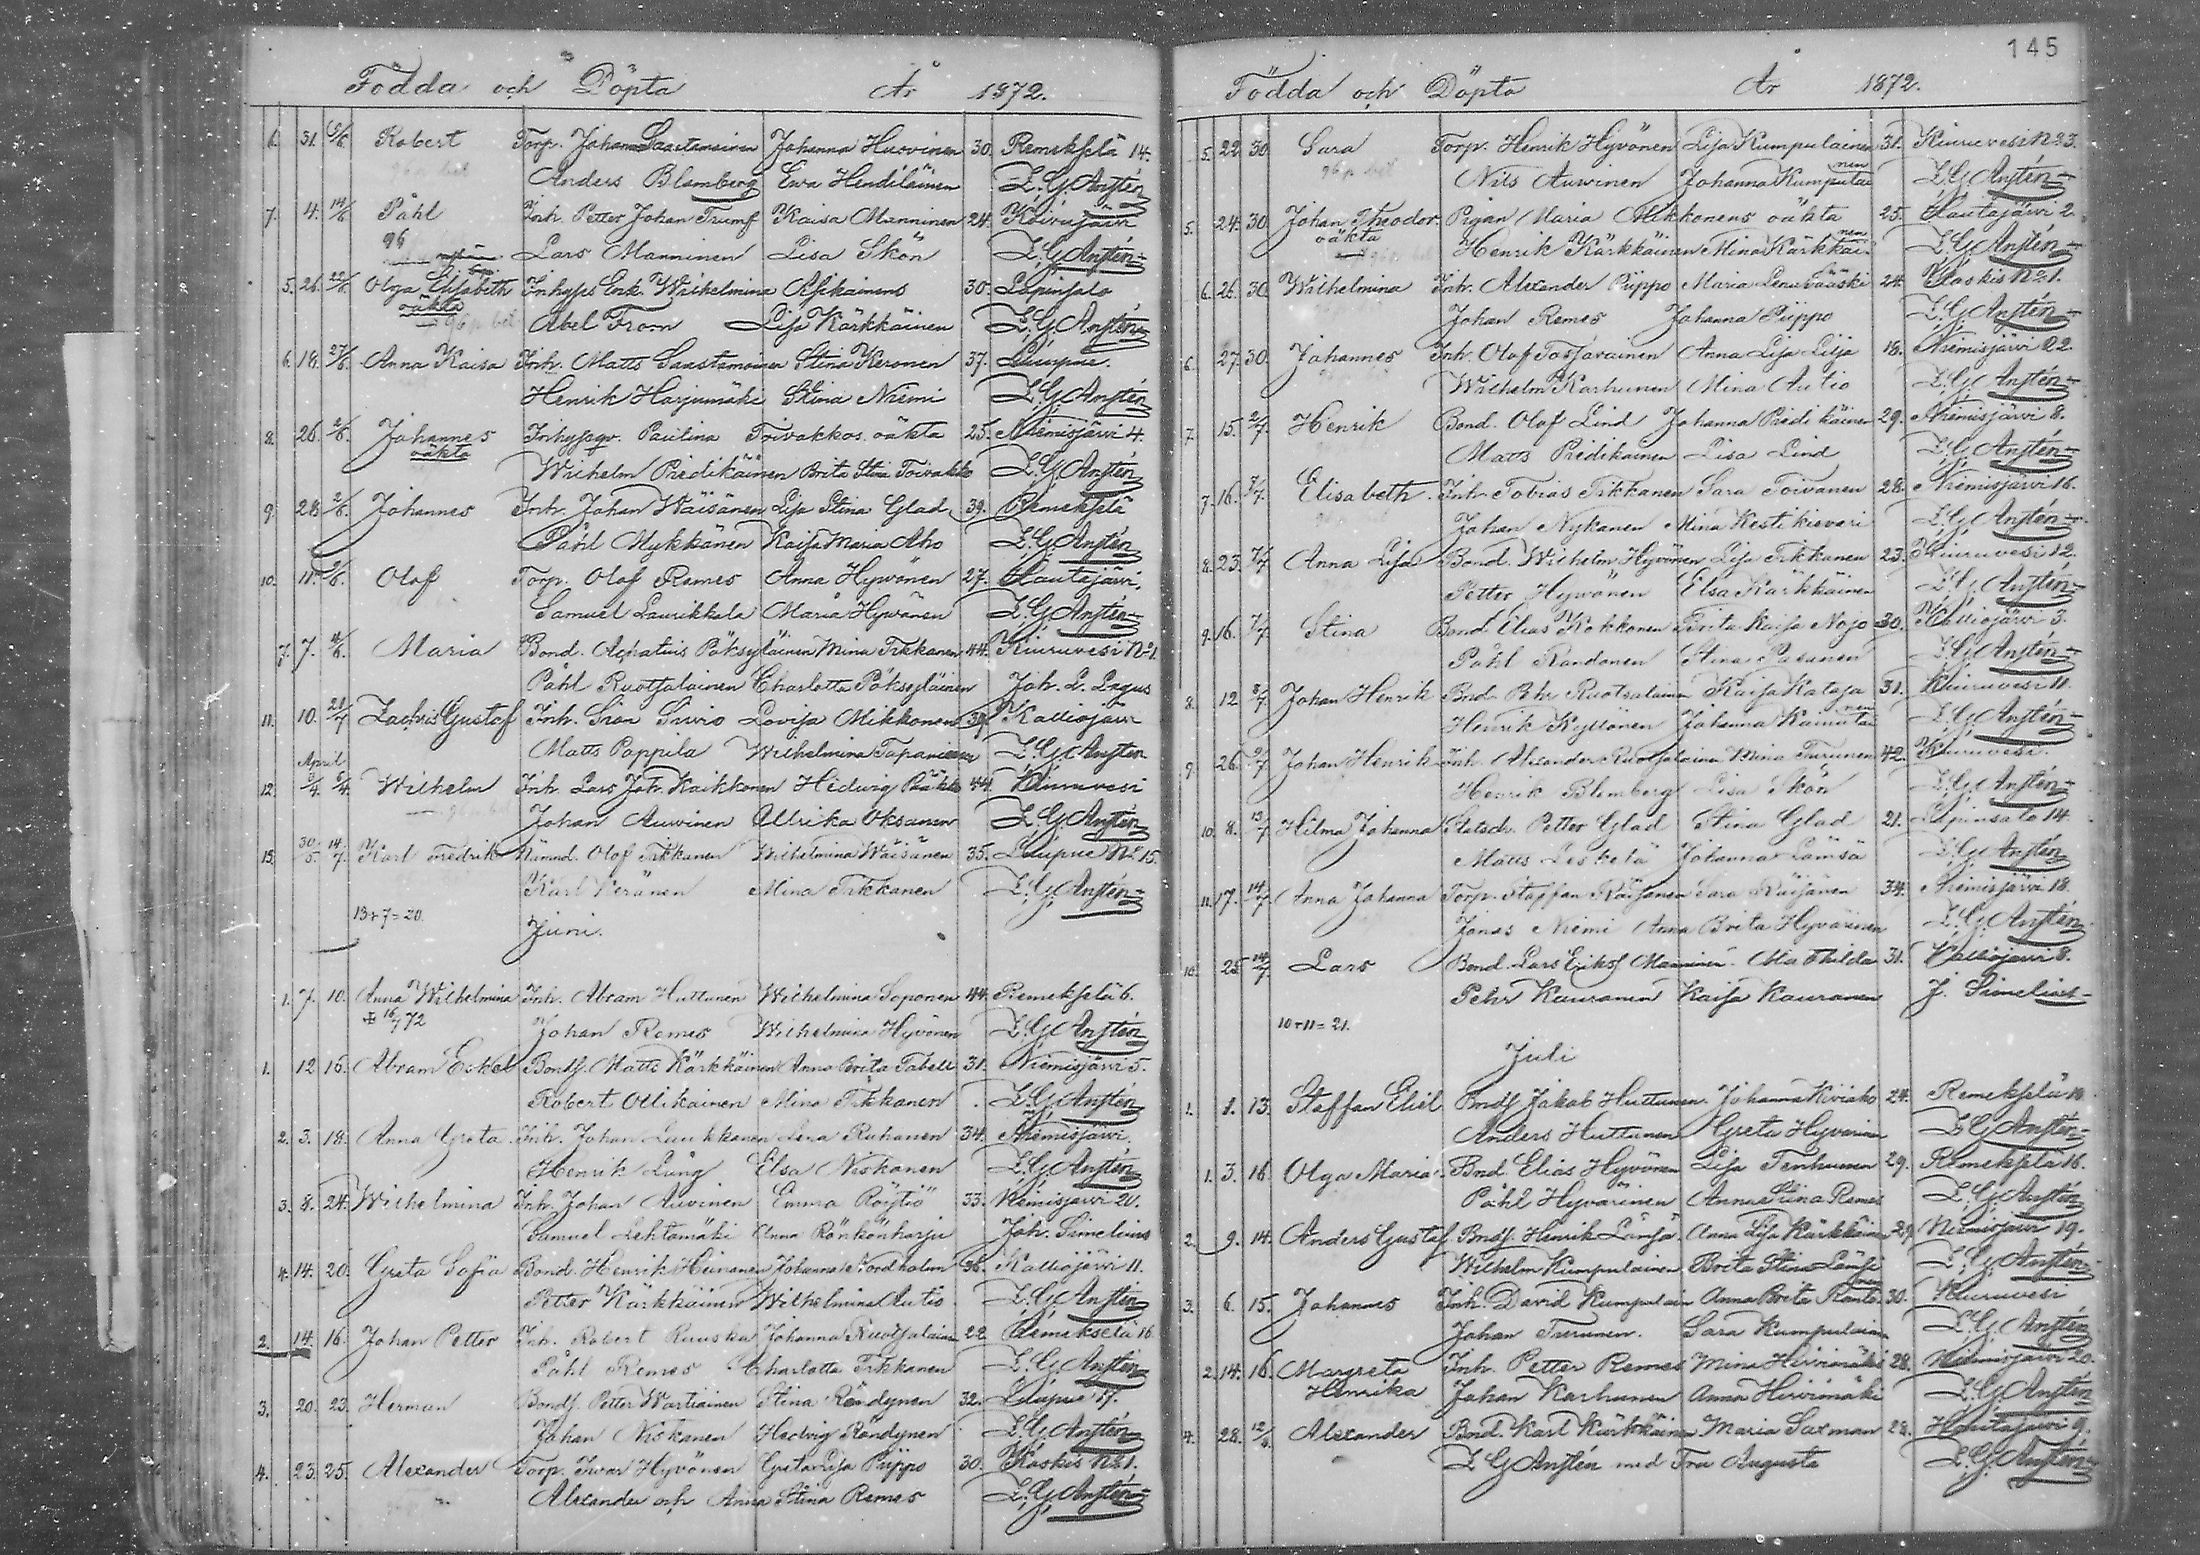 Födda och Döpta År 1872.
6. 31. 6/6 Robert Torp. Johan Saastamoinen Johanna Huovinen 30. Remekselä 14.
Anders Blomberg Ewa Hendiläinen L. G. Anstén
7. 4. 14/6 Påhl Inh. Petter Johan Trumf Kaisa Manninen 24. Koivujärvi
96 Lars Manninen Lisa Skön L. G. Anstén
5. 26. 22/6 Olga Elisabeth Inhyses Enk. Wilhelmina Asikainens 30. Lapinsalo
oäkta Abel From Lisa Kärkkäinen L. G. Anstén
6. 18. 27/6 Anna Kaisa Inh. Matts Saastamoinen Stina Keronen 37. Luupue.
Henrik Harjumäki Stina Niemi L. G. Anstén
8. 26. 2/6. Johannes Inhysesqv. Paulina Toivakkos oäkta 25. Niemisjärvi 4.
oäkta Wilhelm Pridikäinen Brita Stina Toivakko L. G. Anstén
9. 28. 2/6. Johannes Inh. Johan Wäisänen Lisa Stina Glad 39. Remekselä
Påhl Mykkänen Kaisa Maria Aho L. G. Anstén
10. 11. 2/6. Olof Torp. Olof Remes Anna Hyvönen 27. Hautajärvi.
Samuel Laurikkala Maria Hyvönen L. G. Anstén
7. 7. 4/6. Maria Bond. Achatius Pöksyläinen Mina Tikkanen 44. Kiuruvesi No 21.
Påhl Ruotsalainen Charlotta Pöksyläinen Joh. L. Lagus
11. 10. 21/7 Zachris Gustaf Inh. Sion Surio Lovisa Mikkonen 39. Kalliojärvi
Matts Poppila Wilhelmina Tapaninen L. G. Anstén
April
12. 3/4. 6/4 Wilhelm Inh. Lars Joh. Kaikkonen Hedwig Räkko 44. Kiuruvesi
Johan Auvinen Ulrika Oksanen L. G. Anstén
13. 30/5. 14/7. Karl Fredrik Nämnd. Olof Tikkanen Wilhelmina Wäisänen 35. Luupue No. 15.
Karl Keränen Mina Tikkanen L. G. Anstén
13+7=20.
Juni.
1. 7. 10. Anna Wilhelmina Inh. Abram Huttunen Wilhelmina Soponen 44. Remekselä 6.
16/7 72 Johan Remes Wilhelmina Hyvönen L. G. Anstén
1. 12 16. Abram Eskel Bonds. Matts Kärkkäinen Anna Brita Tabell 31. Niemisjärvi 5.
Robert Ollikainen Mina Tikkanen L. G. Anstén
2. 3. 18. Anna Greta Inh. Johan Luukkanen Lena Ruhanen 34. Niemisjärvi.
Henrik Lung Elsa Niskanen L. G. Anstén
3. 8. 24. Wilhelmina Inh. Johan Auvinen Emma Röytiö 33. Niemisjärvi 20.
Samuel Lehtomäki Anna Rönkönharju Joh. Simelius
4. 14. 20. Greta Sofia Bond. Henrik Heinänen Johanna Nordholm 36. Kalliojärvi 11.
Petter Kärkkäinen Wilhelmina Autio L. G. Anstén
2. 14. 16. Johan Petter Inh. Robert Ruuska Johanna Ruotsalainen 22 Remekselä 16
Påhl Remes Charlotta Tikkanen L. G. Anstén
3. 20. 23. Herman Bonds. Petter Wartiainen Stina Rändynen 32. Luupue 17.
Johan Niskanen Hedvig Rändynen L. G. Anstén
4. 23. 25. Alexander Torp. Iwar Hyvönen Greta Lisa Piippo 30. Koskis No 1.
Alexander och Anna Stina Remes L. G. Anstén
145
Födda och Döpta År 1872.
5. 22. 30 Sara Torp. Henrik Hyvönen Lisa Kumpulainen 31. Kiuruvesi No 23.
Nils Auvinen Johanna Kumpulainen L. G. Anstén
5. 24. 30. Johan Theodor Pigan Maria Mikkonens oäkta 25. Hautajärvi 2.
oäkta Henrik Kärkkäinen Mina Kärkkäinen L. G. Anstén
6. 26. 30. Wilhelmina Inh. Alexander Piippo Maria Lena Wääski 24. Koskis No. 1.
Johan Remes Johanna Piippo L. G. Anstén
6. 27. 30. Johannes Inh. Olof Tossavainen Anna Lisa Lilja 18. Niemisjärvi 22.
Wilhelm Karhunen Mina Autio L. G. Anstén
7. 15. 2/7 Henrik Bond. Olof Lind Johanna Pridikäinen 29. Niemisjärvi 8.
Matts Pridikainen Lisa Lind L. G. Anstén
7. 16. 7/7. Elisabeth Inh. Tobias Tikkanen Sara Toivanen 28. Niemisjärvi 16.
Johan Nykänen Mina Kestikievari L. G. Anstén
8. 23. 7/7 Anna Lisa Bond. Wilhelm Hyvönen Lisa Tikkanen 23. Kiuruvesi 12.
Petter Hyvönen Elsa Kärkkäinen L. G. Anstén
9. 16. 7/7 Stina Bond. Elias Kokkonen Brita Kaisa Nojo 30. Kalliojärvi 3.
Påhl Randonen Stina Pasanen L. G. Anstén
8. 12 8/7 Johan Henrik Bnd. Pehr Ruotsalainen Kaisa Kataja 31. Kiuruvesi 11.
Henrik Kyllönen Johanna Kainulainen L. G. Anstén
9. 26. 9/7 Johan Henrik Inh. Alexander Ruotsalainen Mina Turunen 42. Kiuruvesi.
Henrik Blomberg Lisa Skön L. G. Anstén
10. 8. 13/7 Hilma Johanna Statsdr. Petter Glad Stina Glad 21. Lapinsalo 14.
Matts Leskelä Johanna Lämsä L. G. Anstén
11. 17. 14/7 Anna Johanna Torp. Staffan Räisänen Sara Räisänen 34. Niemisjärvi 18.
Jonas Niemi Anna Brita Hyvärinen L. G. Anstén
10. 25. 14/7 Lars Bond. Lars Eriks Manninen Mathilda 31. Kalliojärvi 8.
Pehr Kauranen Kaisa Kauranen J. Simelius
10+11=21.
Juli
1. 1. 13. Staffan Eliel Bnds Jakob Huttunen Johanna Kiviaho 24. Remekselä 10
Anders Huttunen Greta Hyvärinen L. G. Anstén
1. 3. 16 Olga Maria Bnd. Elias Hyvönen Lisa Tenhunen 29. Remekselä 16.
Påhl Hyvärinen Anna Stina Remes L. G. Anstén
2. 9. 14. Anders Gustaf Bnds. Henrik Lämsä Anna Lisa Kärkkäinen 29 Niemisjärvi 19.
Wilhelm Kumpulainen Brita Stina Lämsä L. G. Anstén
3. 6. 15. Johannes Inh. David Kumpulain Anna Brita Rauta 30. Kiuruvesi
Johan Turunen. Sara Kumpulainen L. G. Anstén
2. 14. 16. Margreta Inh. Petter Remes Mina Hirvimäki 28. Niemisjärvi 20.
Henrika Johan Karhunen Anna Hirvimäki L. G. Anstén
4. 28. 12/8 Alexander Bnd. Karl Kärkkäinen Maria Saxman 28. Hautajärvi 9.
L G Anstén med Fru Augusta L. G. Anstén